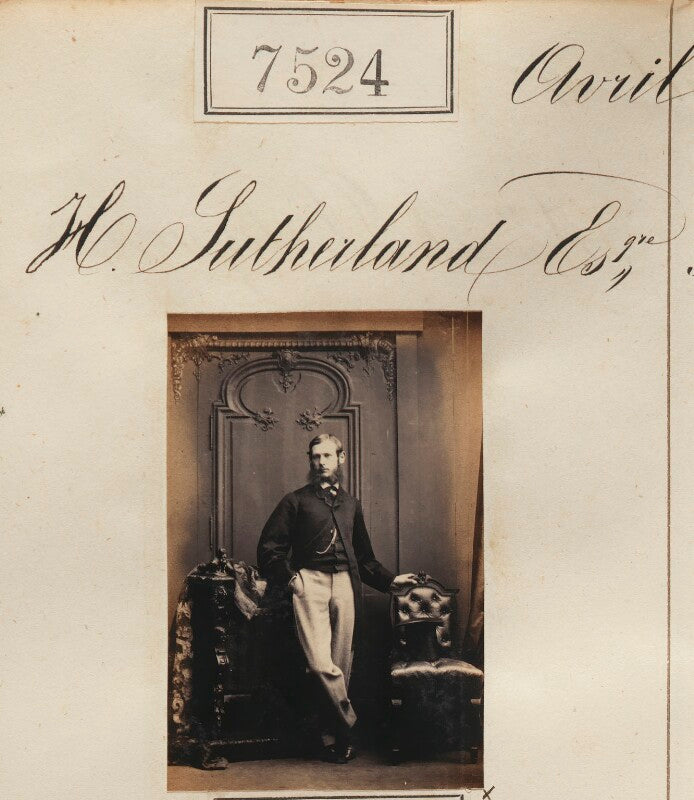 7524
Avril
H. Sutherland Esqre